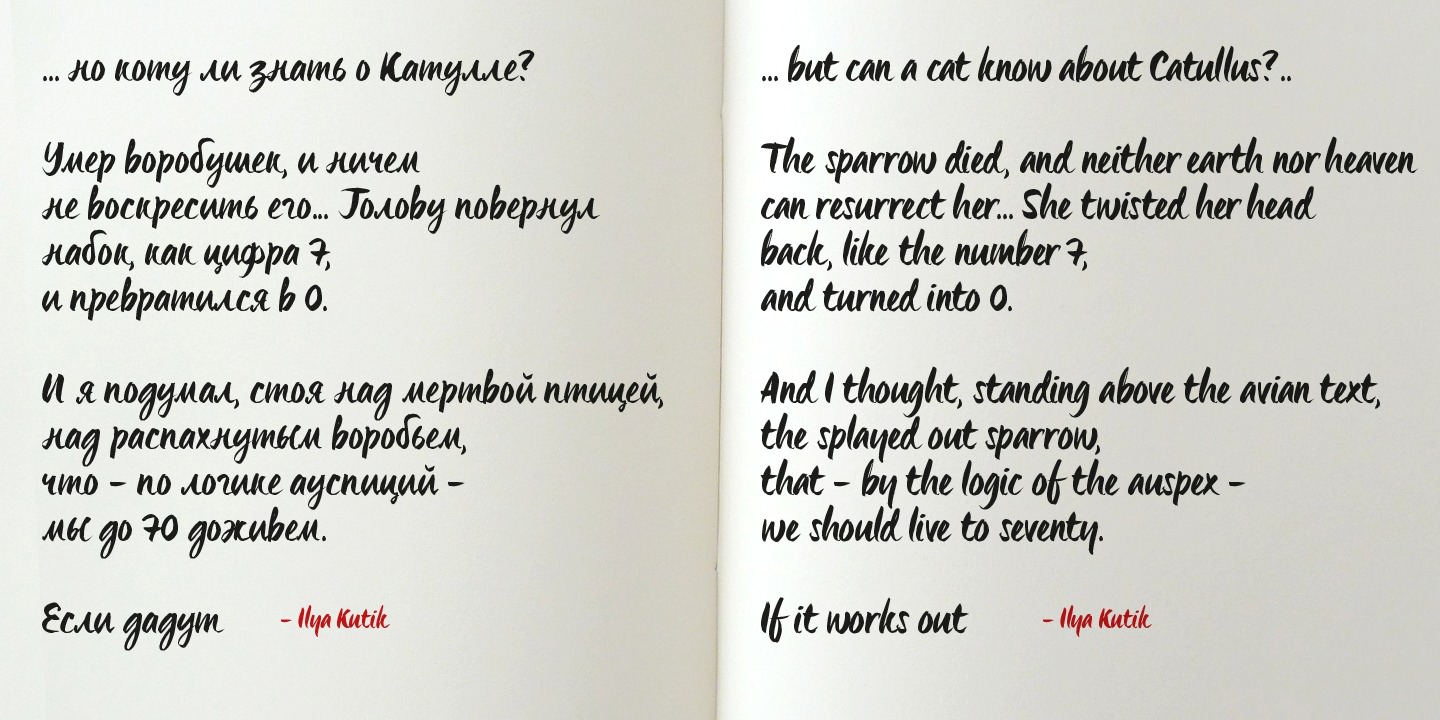 ... но коту ли знать о Катулле?
Умер воробушек, и ничем
не воскресить его... Голову повернул
набок, как цифра 7,
и превратился в 0.
И я подумал, стоя над мертвой птицей,
над распахнутым воробьем,
что – по логике ауспиций –
мы до 70 доживем.
Если дадут
– Ilya Kutik
... but can a cat know about Catullus?..
The sparrow died, and neither earth nor heaven
can resurrect her... She twisted her head
back, like the number 7,
and turned into 0.
And I thought, standing above the avian text,
the splayed out sparrow,
that – by the logic of the auspex –
we should live to seventy.
If it works out
– Ilya Kutik